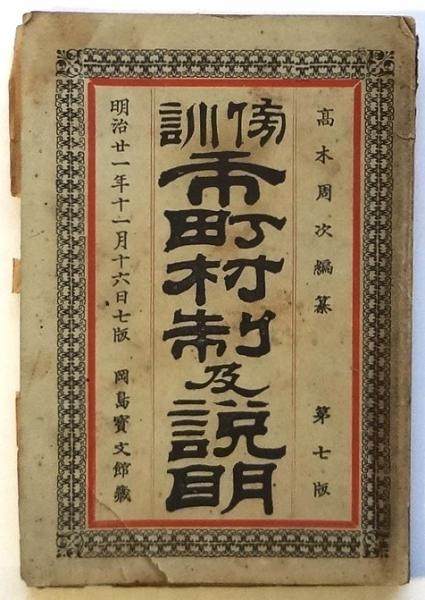 高木周次編纂　第七版
傍訓
市町村制及説明
明治廿一年十一月十六日七版　岡島寳文館藏